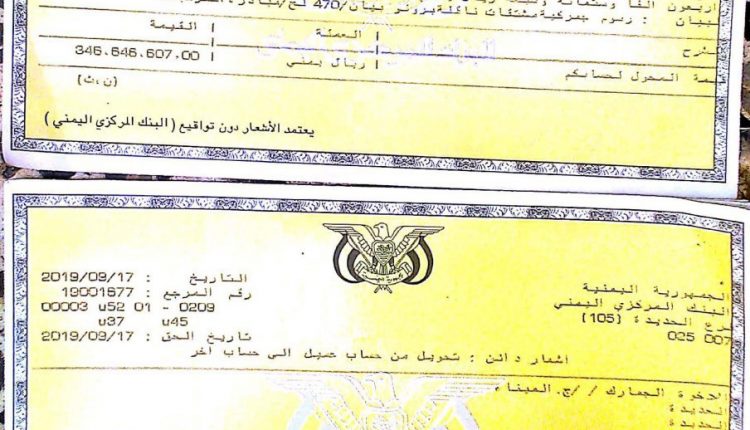 اربعون الفا وستمائة
بيان : رسوم جمركية مشتقات ناقلة برونو بيان/470
العملة القيمة
ريال يمني 346,646,607.00
المحول لحسابكم
(ن،ث)
يعتمد الأشعار دون تواقيع (البنك المركزي اليمني)
الجمهورية اليمنية
البنك المركزي اليمني
فرع الحديدة (105)
025 007
التاريخ : 2019/09/17
رقم المرجع : 19001677
00003 u52 01 - 0209
u37 u45
تاريخ الحق : 2019/09/17
اشعار دائن : تحويل من حساب عميل الى حساب آخر
الاخوة الجمارك / /ج. الميناء
الحديدة
الحديدة